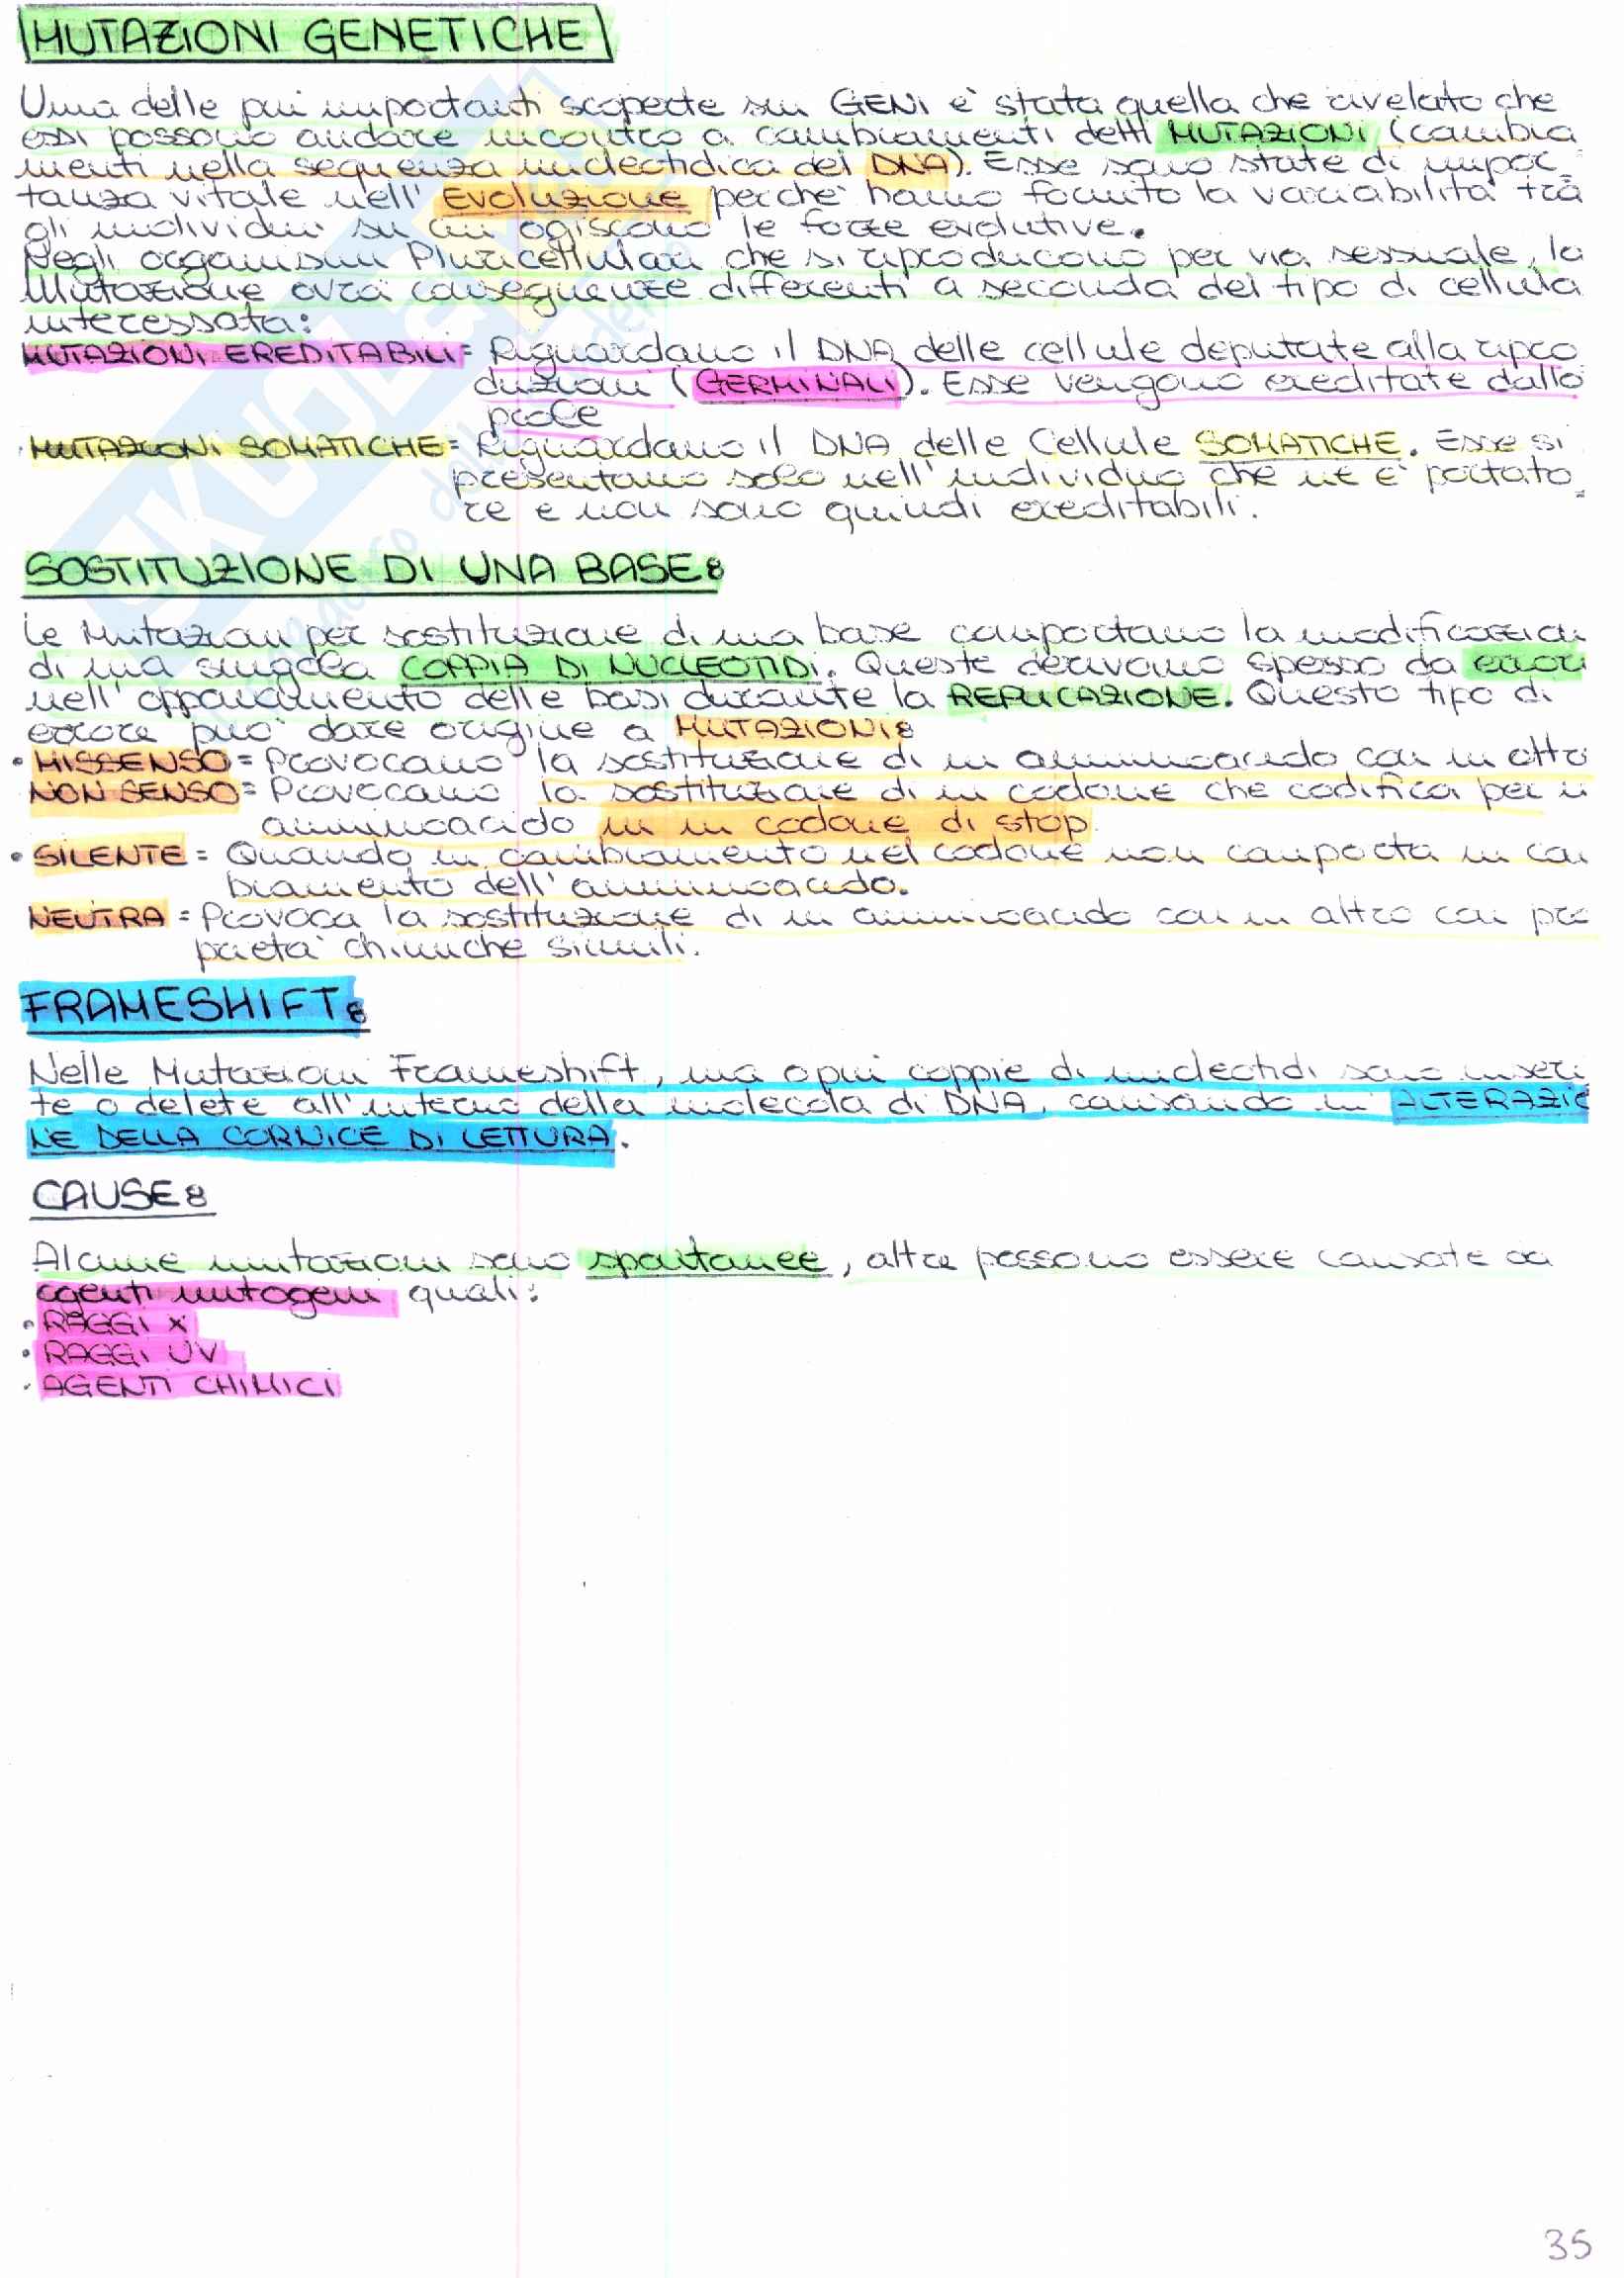 MUTAZIONI GENETICHE
Una delle più importanti scoperte sui GENI è stata quella che rivelato che
essi possono andare incontro a cambiamenti detti MUTAZIONI (cambia
menti nella sequenza nucleotidica del DNA). Esse sono state di impor_
tanza vitale nell' EVOLUZIONE perchè hanno fornito la variabilità tra
gli individui su cui agiscono le forze evolutive.
Negli organismi Pluricellulari che si riproducono per via sessuale, la
Mutazione avrà conseguenze differenti a seconda del tipo di cellula
interessata:
MUTAZIONI EREDITABILI = Riguardano il DNA delle cellule deputate alla ripro
duzioni (GERMINALI). Esse vengono ereditate dalla
prole
• MUTAZIONI SOMATICHE = Riguardano il DNA delle Cellule SOMATICHE. Esse si
presentano solo nell'individuo che ne è portato_
re e non sono quindi ereditabili.
SOSTITUZIONE DI UNA BASE:
Le Mutazioni per sostituzione di una base comportano la modificazion
di una singola COPPIA DI NUCLEOTIDI. Queste derivano spesso da errori
nell'appaiamento delle basi durante la REPLICAZIONE. Questo tipo di
errore può dare origine a MUTAZIONI:
• MISSENSO = Provocano la sostituzione di un amminoacido con un altro
NON SENSO = Provocano la sostituzione di un codone che codifica per u
amminoacido in un codone di stop
• SILENTE = Quando un cambiamento nel codone non comporta un cam
biamento dell'amminoacido.
NEUTRA = Provoca la sostituzione di un amminoacido con un altro con pro
prietà chimiche simili.
FRAMESHIFT:
Nelle Mutazioni Frameshift, una o più coppie di nucleotidi sono inseri
te o delete all'interno della molecola di DNA, causando un ALTERAZIO
NE DELLA CORNICE DI LETTURA.
CAUSE:
Alcune mutazioni sono spontanee, altre possono essere causate da
agenti mutageni quali:
• RAGGI X
• RAGGI UV
• AGENTI CHIMICI
35